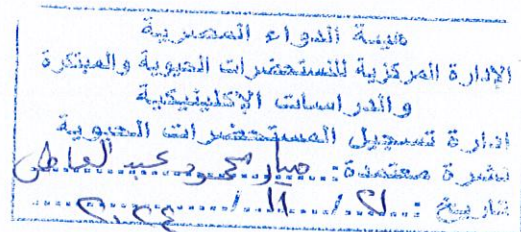 هيئة الدواء المصرية
الإدارة المركزية للمستحضرات الحيوية والمبتكرة
والدراسات الإكلينيكية
ادارة تسجيل المستحضرات الحيوية
نشرة معتمدة: ميار محمود عبد العاطى
تاريخ : ٢١ / ١١ / ٢٠٢٤